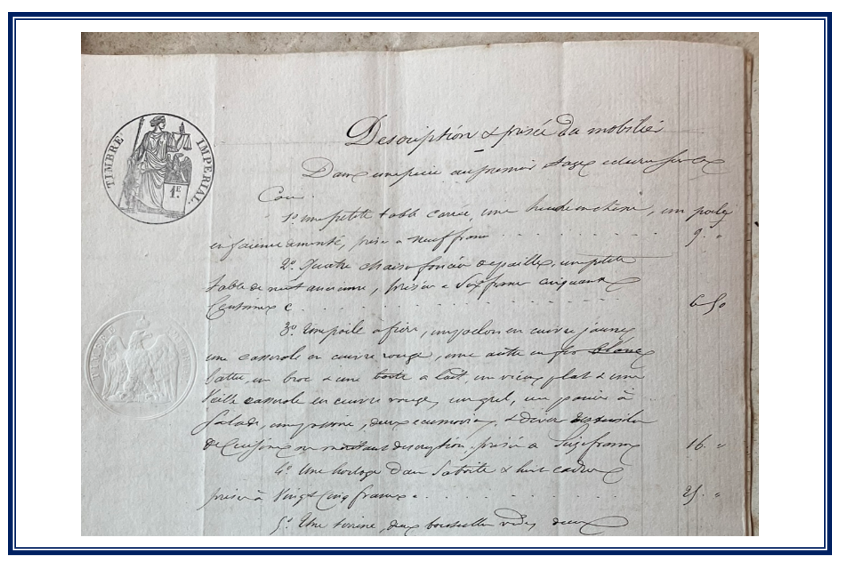 TIMBRE IMPERIAL.
1F.
Description & prisée du mobilier
Dans une pièce au premier étage éclairée sur la
Cour.
1º une petite table carrée, une huche en chêne, un poële
en faïence amonté, prisé à neuf francs 9. "
2º Quatre chaises foncées de paille, une petite
table de nuit ancienne, prisées à six francs cinquante
Centimes 6 50
3º Une poile à frire, un poelon en cuivre jaune,
une casserole en cuivre rouge, une autre en fer blanc
battu, un broc & une boîte à lait, un vieux plat & une
vieille casserole en cuivre rouge, un gril, un panier à
Salade, deux écumoires, & divers
de Cuisine ne méritant description, prisé à Seize francs 16 "
4º Une horloge dans sa boîte & huit cadres
prisés à Vingt Cinq francs 25. "
5º Une terrine, deux bouteilles vides, deux